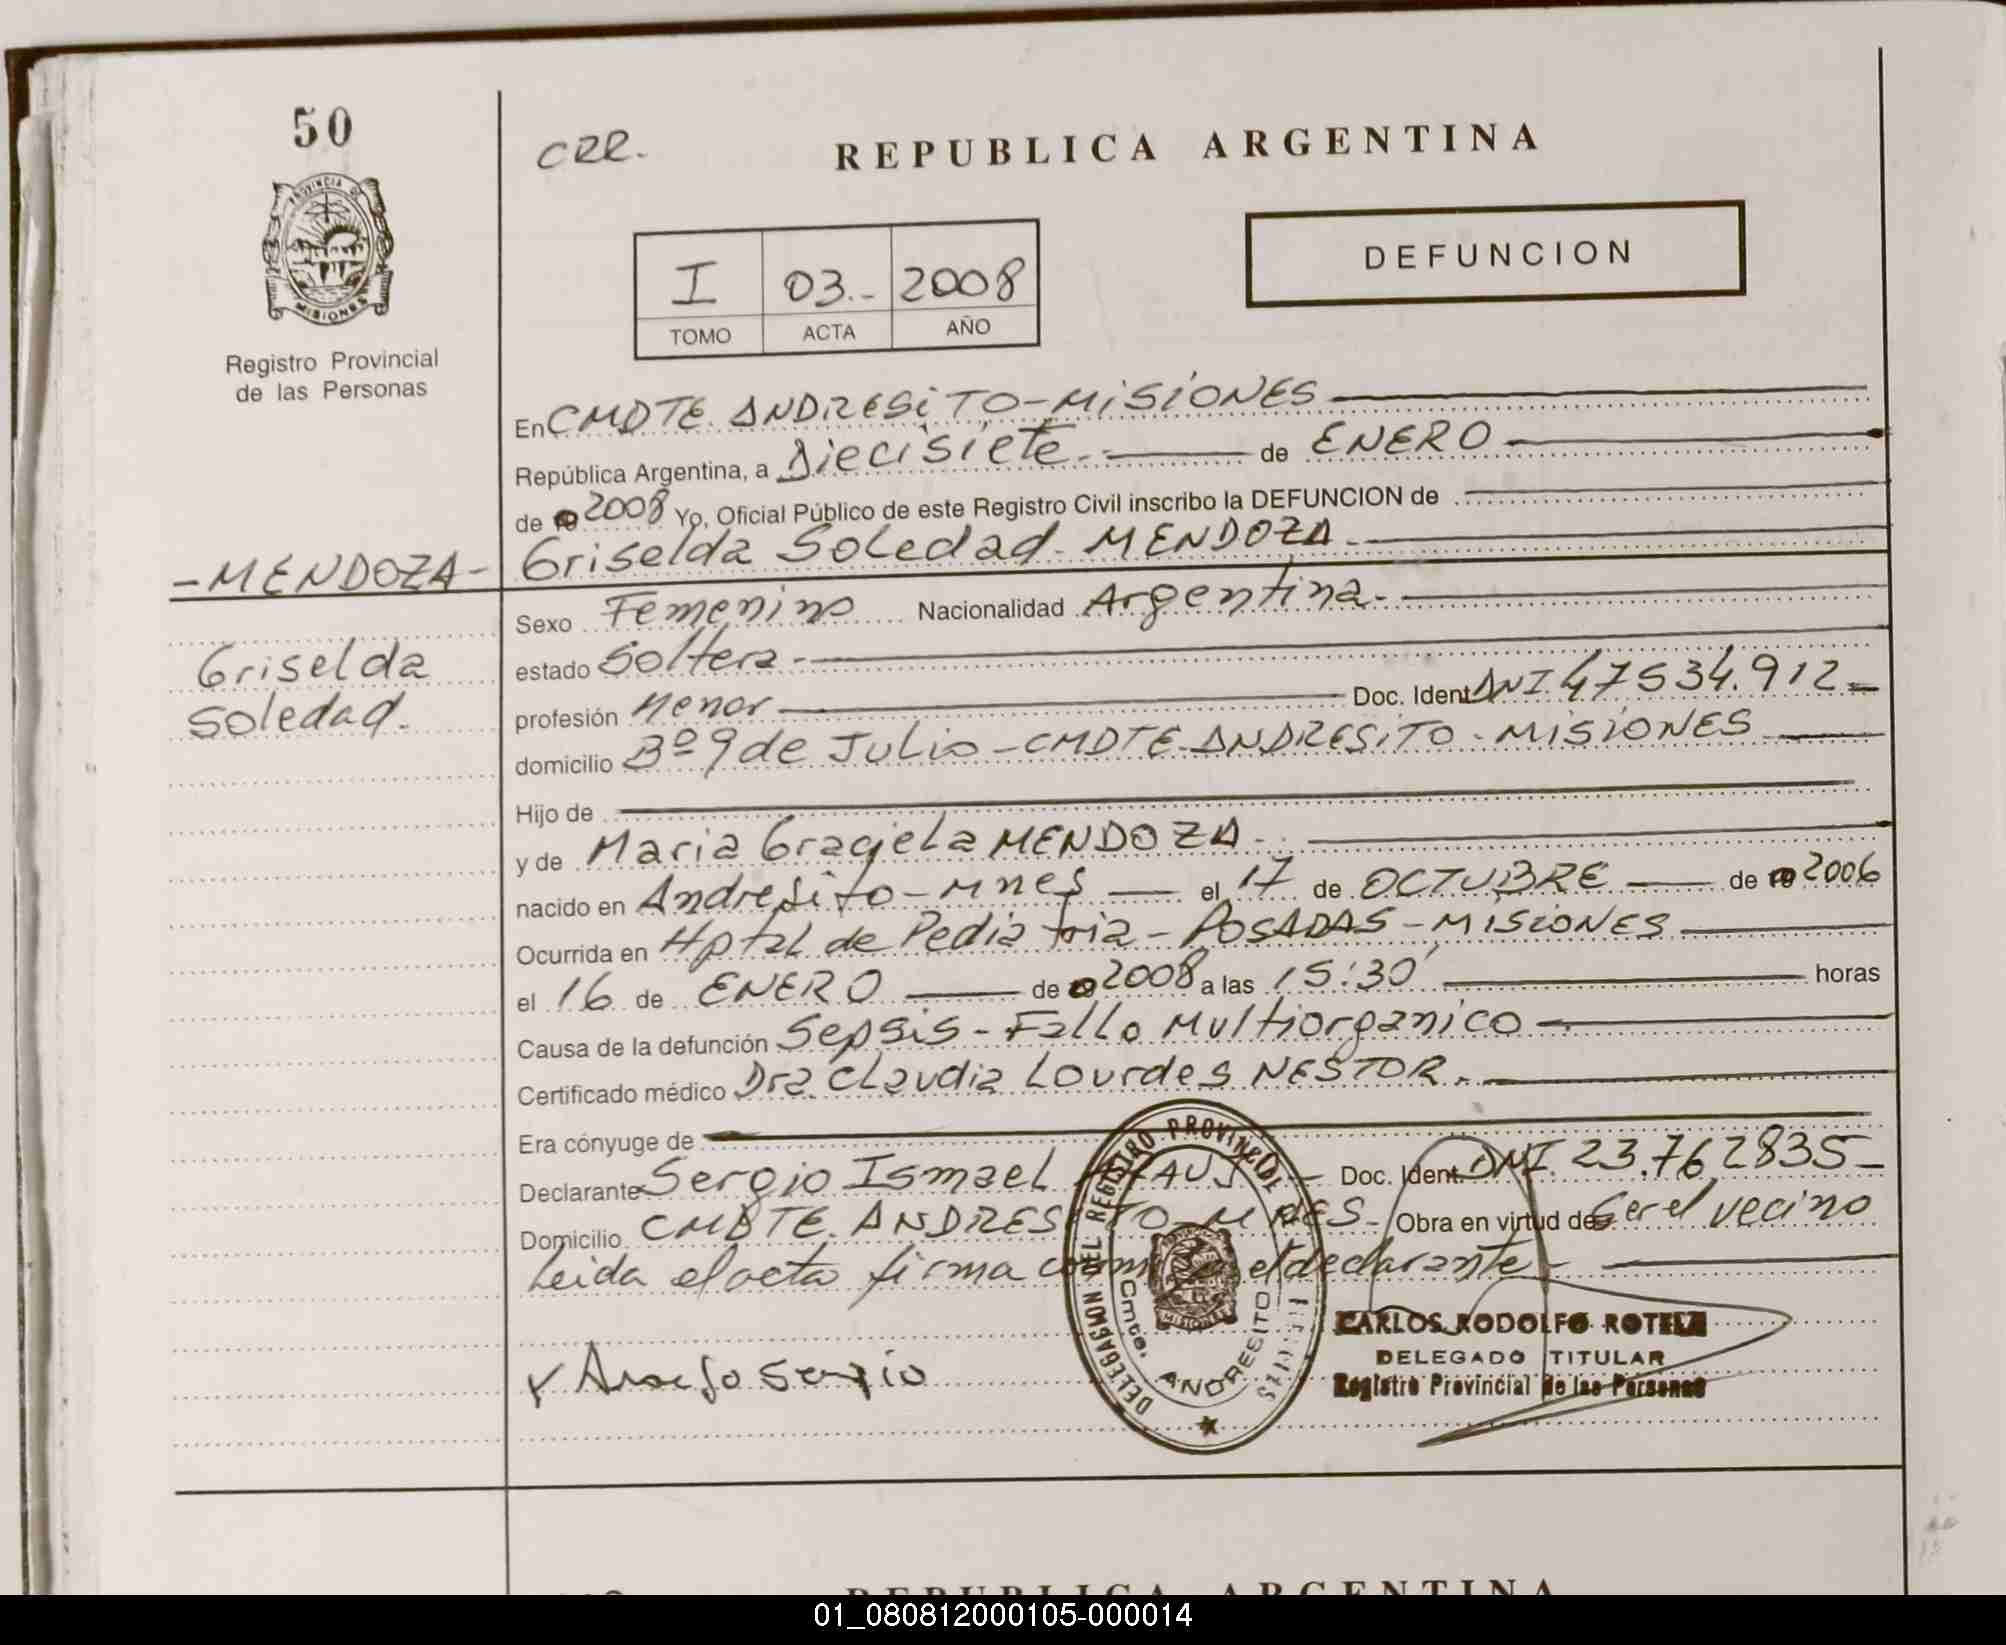 50
PROVINCIA DE
MISIONES
Registro Provincial
de las Personas
CRR.
REPUBLICA ARGENTINA
I 03.- 2008
TOMO ACTA AÑO
DEFUNCION
En CMDTE ANDRESITO-MISIONES
República Argentina, a Diecisiete.- de ENERO
de 19 2008 Yo, Oficial Público de este Registro Civil inscribo la DEFUNCION de
-MENDOZA- Griselda Soledad MENDOZA.
Sexo Femenino Nacionalidad Argentina.-
Griselda
Soledad.
estado Soltera.-
profesión Menor Doc. Ident DNI.47534.912=
domicilio Bº 9 de Julio-CMDTE-ANDRESITO-MISIONES
Hijo de
y de Maria Graciela MENDOZA.-
nacido en Andresito-Mnes el 17 de OCTUBRE de 19 2006
Ocurrida en Hptal de Pediatria-POSADAS-MISIONES
el 16 de ENERO de 19 2008 a las 15:30' horas
Causa de la defunción Sepsis-Fallo Multiorganico
Certificado médico Dra. Claudia Lourdes NESTOR.
Era cónyuge de
Declarante Sergio Ismael Doc. Ident DNI. 23.762835-
Domicilio CMDTE. ANDRESITO-MNES- Obra en virtud de Ser el vecino
Leida el acta firma conmigo el declarante-
DELEGACION DEL REGISTRO PROVINCIAL DE LAS PERSONAS
MISIONES
Cmte. ANDRESITO
Sergio
CARLOS RODOLFO ROTELA
DELEGADO TITULAR
Registro Provincial de las Personas
REPUBLICA ARGENTINA
01_080812000105-000014